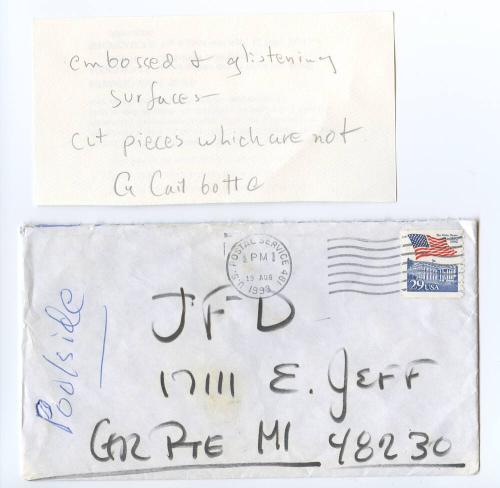 embossed & glistening
surfaces-
cut pieces which are not
Cail botte
U.S. POSTAL SERVICE 481
PM
19 AUG
1993
29 USA
Poolside
JFD
17111 E. JEFF
GR PTE MI 48230